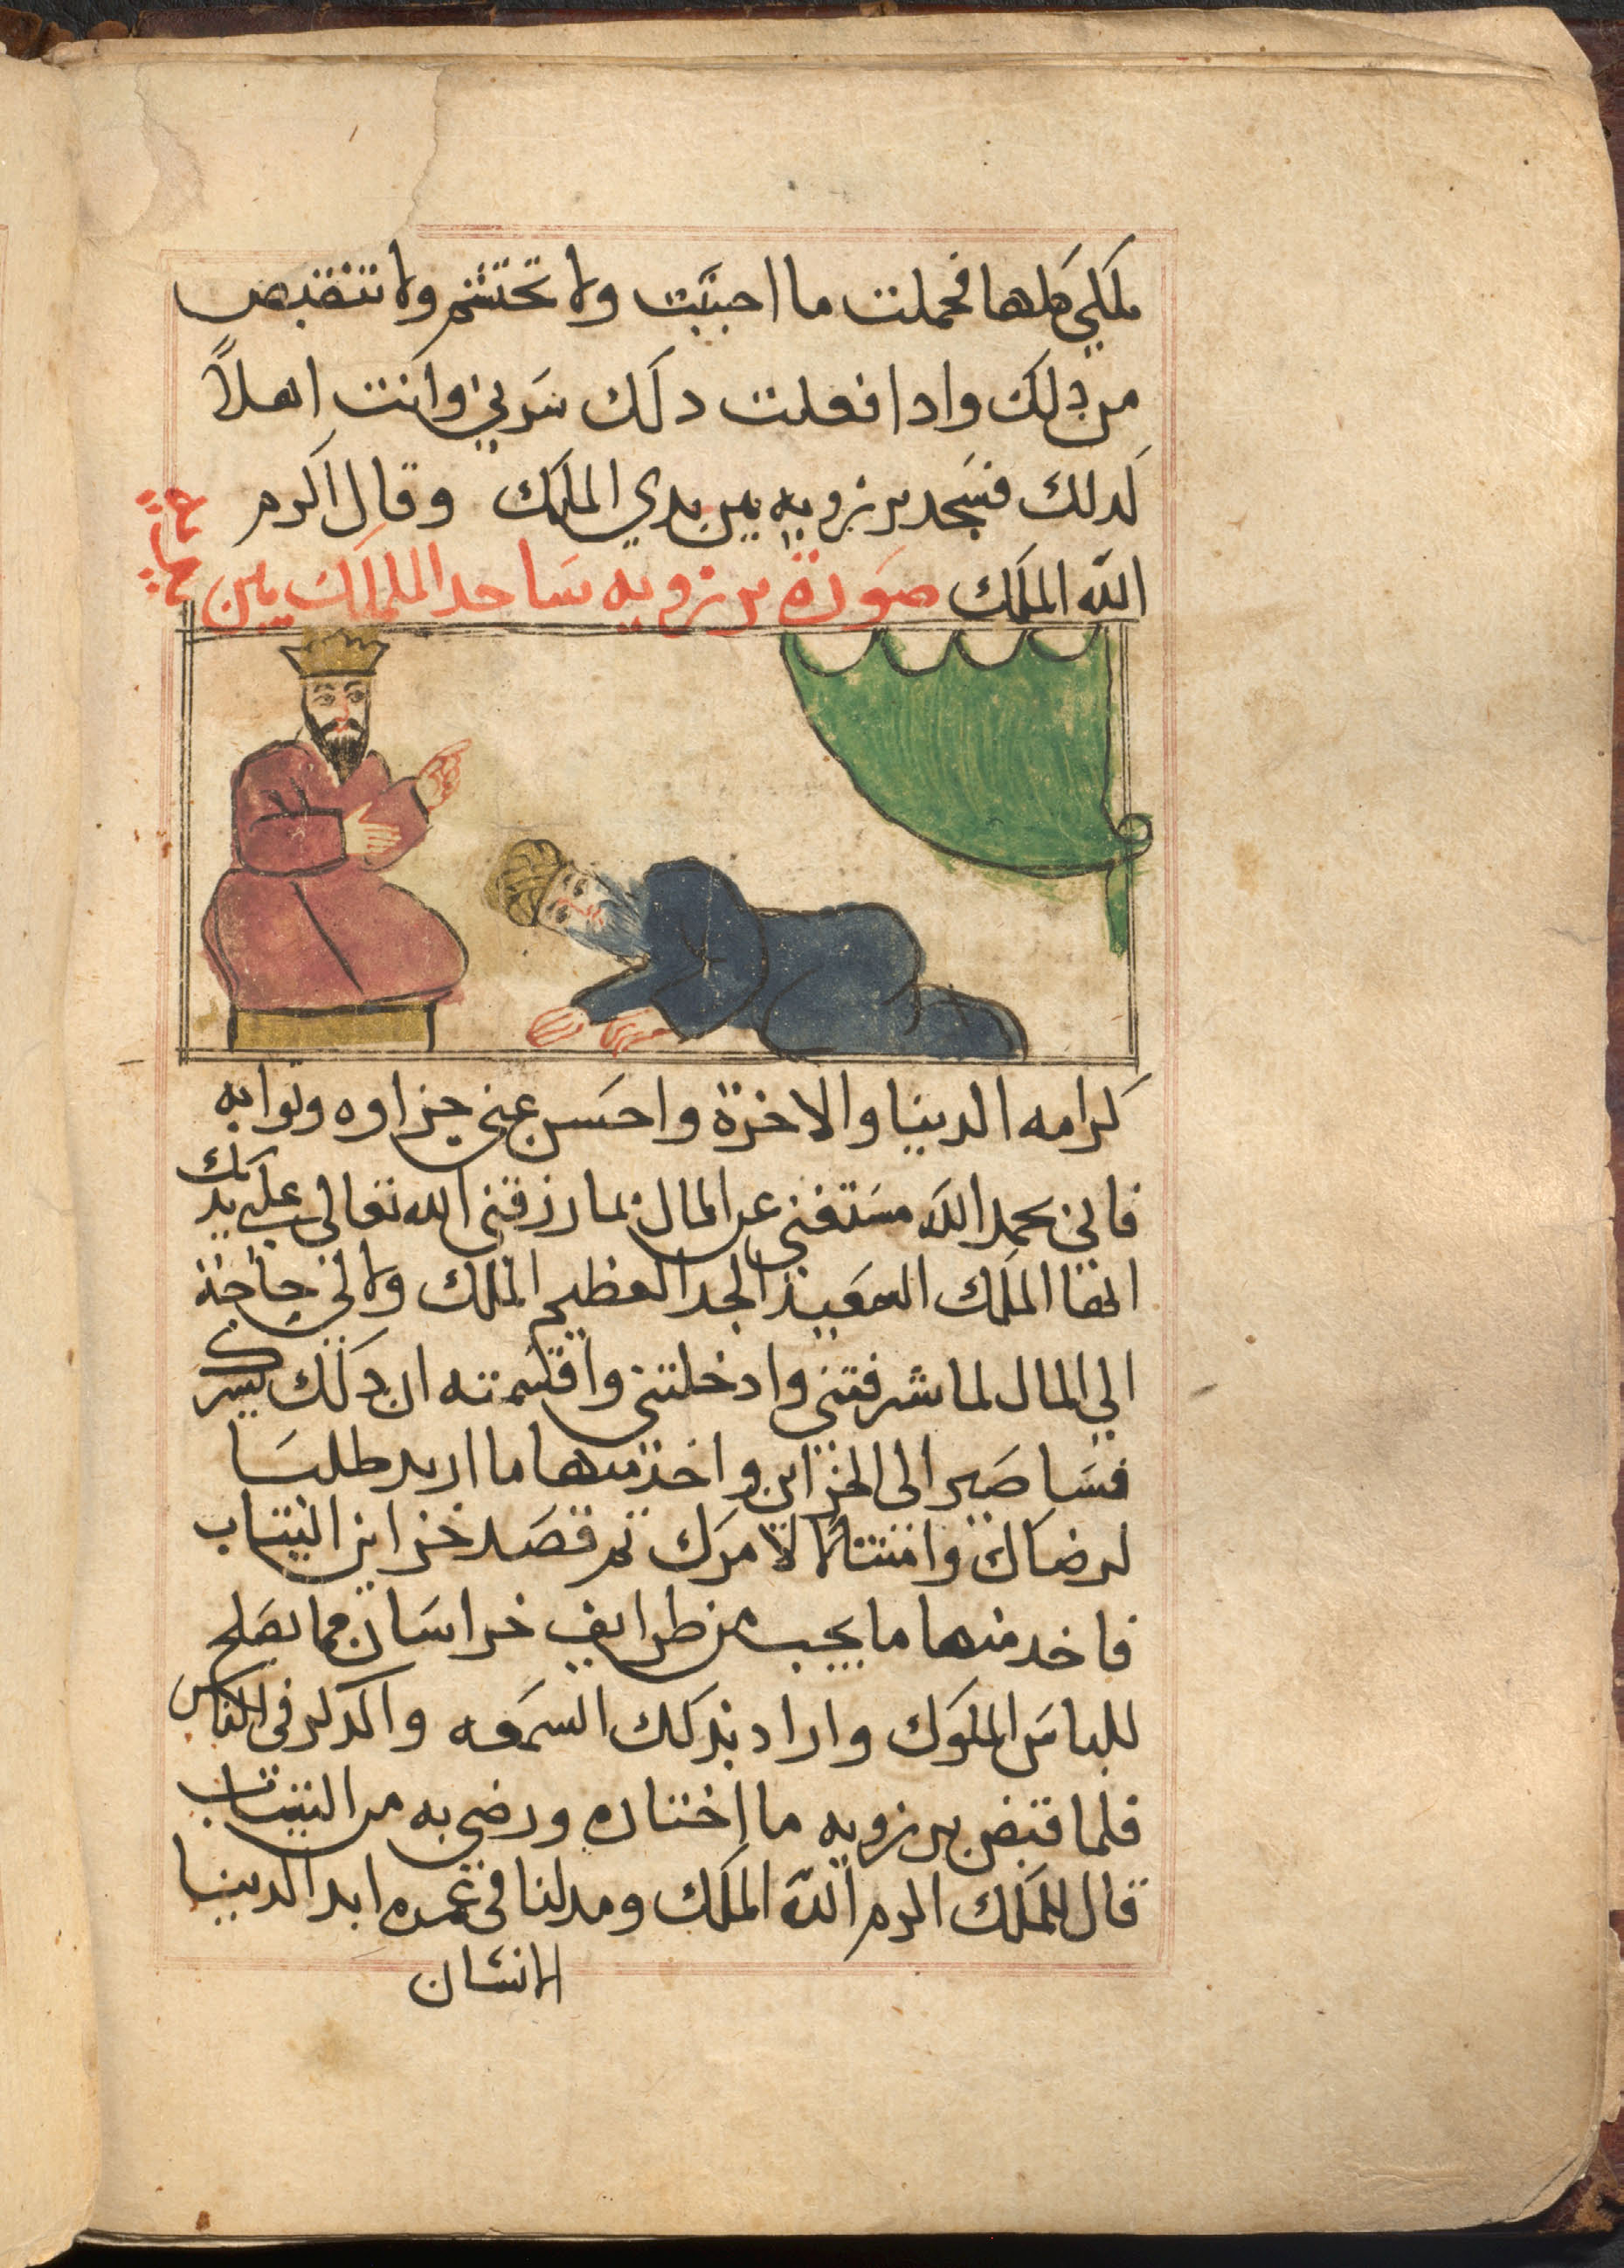 ملكي كلها فحملت ما احببت ولا تحتشم ولا تنقبض
من دلك وادا فعلت دلك سَرني وانت اهلاً
لدلك فسَجد برزويه بين يدي الملك وقال اكرم
الله الملك صَورة برزويه سَاجد الململك بين
كرامه الدنيا والاخرة واحسَن عني جزاوه وتوابه
فاني بحمد الله مسَتغني عن المال بما رزقني الله تعالى على يدك
ايها الملك السَعيد الجد العظيم الملك ولا لي حاجة
الي المال لما شرفتني وادخلتني واقسَمته ان دلك يسرك
فسَاصَير الى الخزاين واخذ منها ما اريد طلبَا
لرضاك وامتتالا لامرك تم قصَد خزاين التياب
فاخد منها ما يجب من طرايف خراسَان مما يصَلح
للباسَ الملوك واراد بدلك السمَعه والدكر في الناس
فلما قبض برزويه ما اختاره ورضي به من التياب
قال للملك اكرم الله الملك ومد لنا في عمره ابد الدنيا
الانسَان